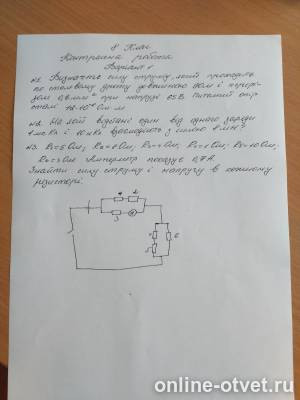 8 клас
Контрольна робота
Варіант 1
№1. Визначте силу струму, який проходить
по сталевому дроту довжиною 10м і перері-
зом 0,6мм² при напрузі 25 В. Питомий опір
Ом м
№2. На якій відстані один від одного заряди
1мкКл і 10нКл взаємодіють з силою 9мН?
№3. R₁=5Ом; R₂=8Ом; R₄=1Ом; R₅=10Ом;
R₆=3Ом Амперметр показує 0,7А
Знайти силу струму і напругу в кожному
резисторі.
1 2
3 A
4
5
6
online-otvet.ru